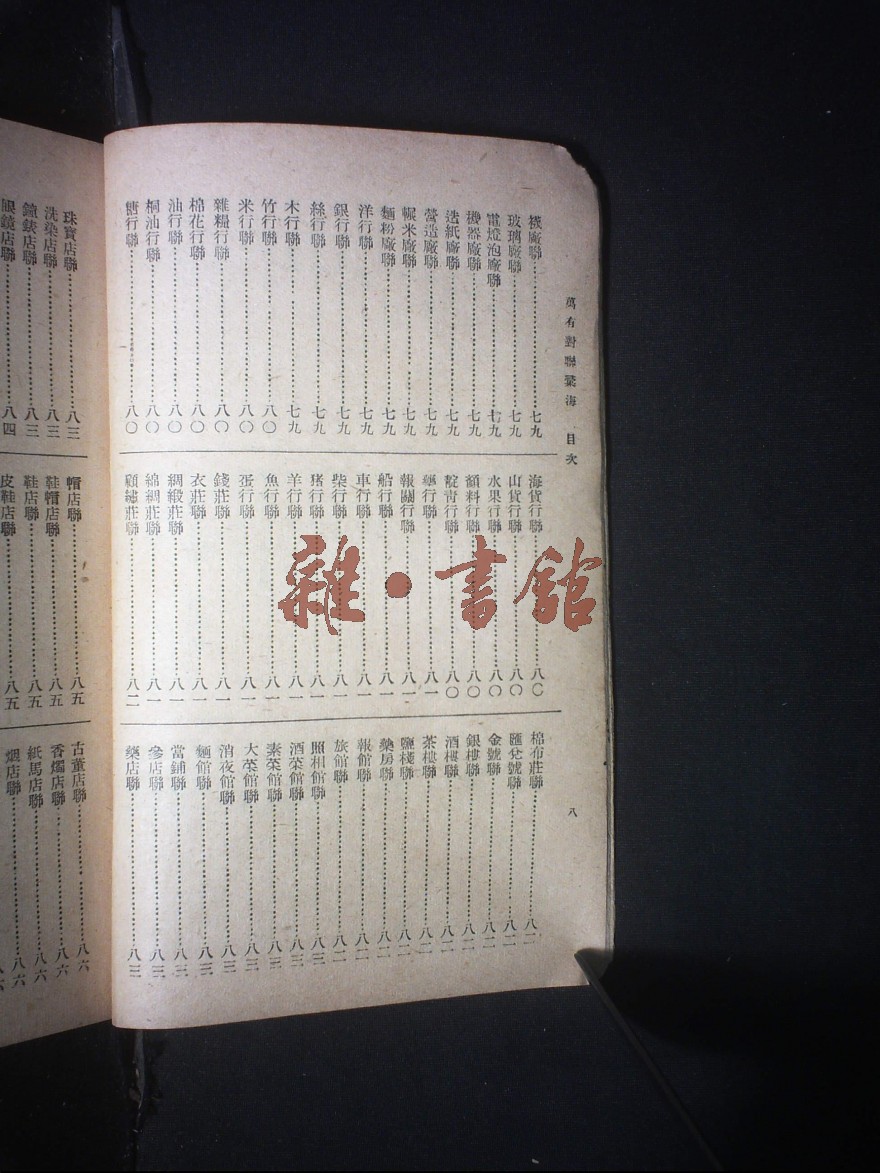 萬有對聯彙海 目次
八
襪廠聯 七九
玻璃廠聯 七九
電燈泡廠聯 七九
機器廠聯 七九
造紙廠聯 七九
營造廠聯 七九
輾米廠聯 七九
麵粉廠聯 七九
洋行聯 七九
銀行聯 七九
絲行聯 七九
木行聯 七九
竹行聯 八〇
米行聯 八〇
雜糧行聯 八〇
棉花行聯 八〇
油行聯 八〇
桐油行聯 八〇
糖行聯 八〇
海貨行聯 八〇
山貨行聯 八〇
水果行聯 八〇
顏料行聯 八〇
靛青行聯 八〇
藥行聯 八一
報關行聯 八一
船行聯 八一
車行聯 八一
柴行聯 八一
猪行聯 八一
羊行聯 八一
魚行聯 八一
蛋行聯 八一
錢莊聯 八一
衣莊聯 八一
綢緞莊聯 八一
綿綢莊聯 八一
顧繡莊聯 八二
棉布莊聯 八二
匯兌號聯 八二
金號聯 八二
銀樓聯 八二
酒樓聯 八二
茶樓聯 八二
鹽棧聯 八二
藥房聯 八二
報館聯 八二
旅館聯 八二
照相館聯 八三
酒菜館聯 八三
素菜館聯 八三
大菜館聯 八三
消夜館聯 八三
麵館聯 八三
當鋪聯 八三
參店聯 八三
藥店聯 八三
珠寶店聯 八三
洗染店聯 八三
鐘錶店聯 八三
眼鏡店聯 八四
帽店聯 八五
鞋帽店聯 八五
鞋店聯 八五
皮鞋店聯 八五
古董店聯 八六
香燭店聯 八六
紙馬店聯 八六
烟店聯 八六
雜·書館